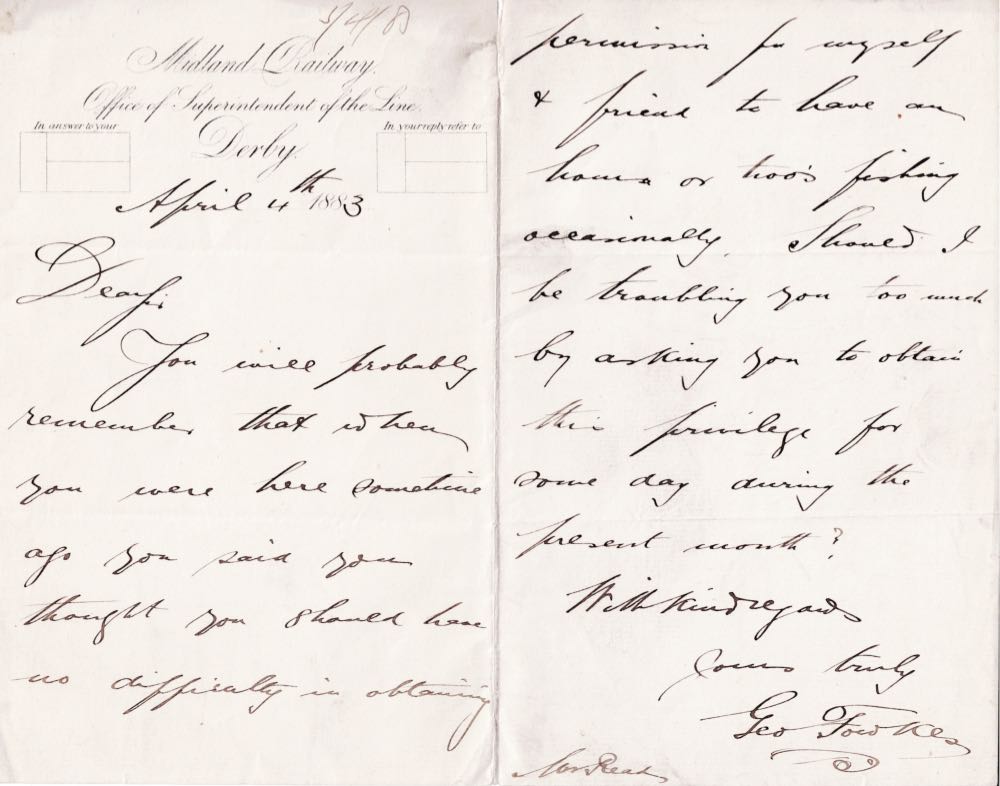 5/4/83
Midland Railway.
Office of Superintendent of the Line.
In answer to your
In your reply refer to
Derby.
April 4th 1883
Dear Sir
You will probably
remember that when
you were here sometime
ago you said you
thought you should have
no difficulty in obtaining
permission for myself
& friend to have an
hours or two's fishing
occasionally. Should I
be troubling you too much
by asking you to obtain
this privilege for
some day during the
present month?
With kind regards
Yours truly
Geo Fowkes
Mr Read